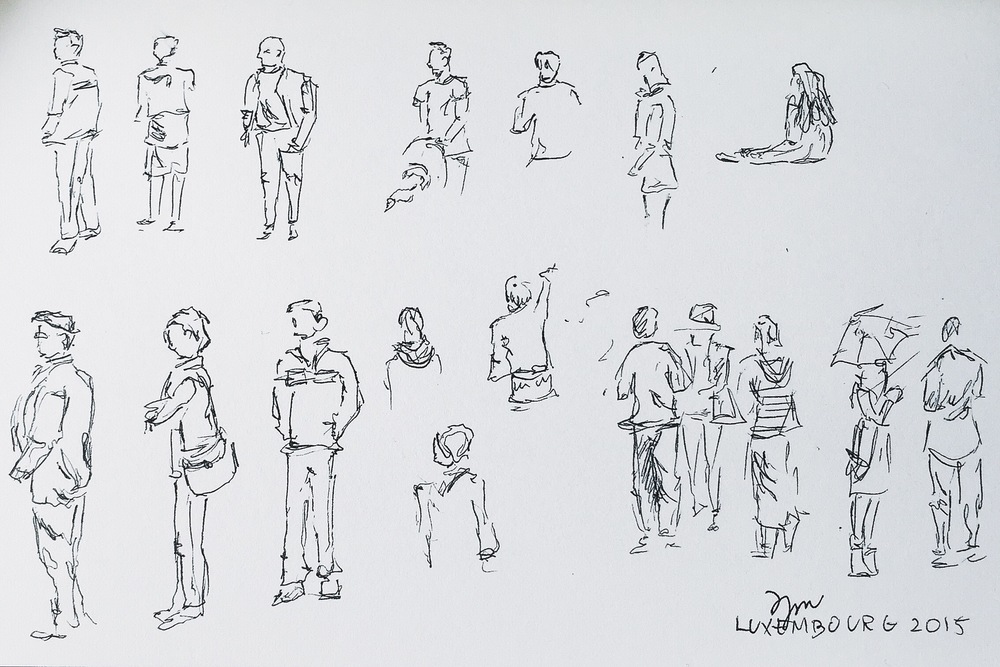 LUXEMBOURG 2015